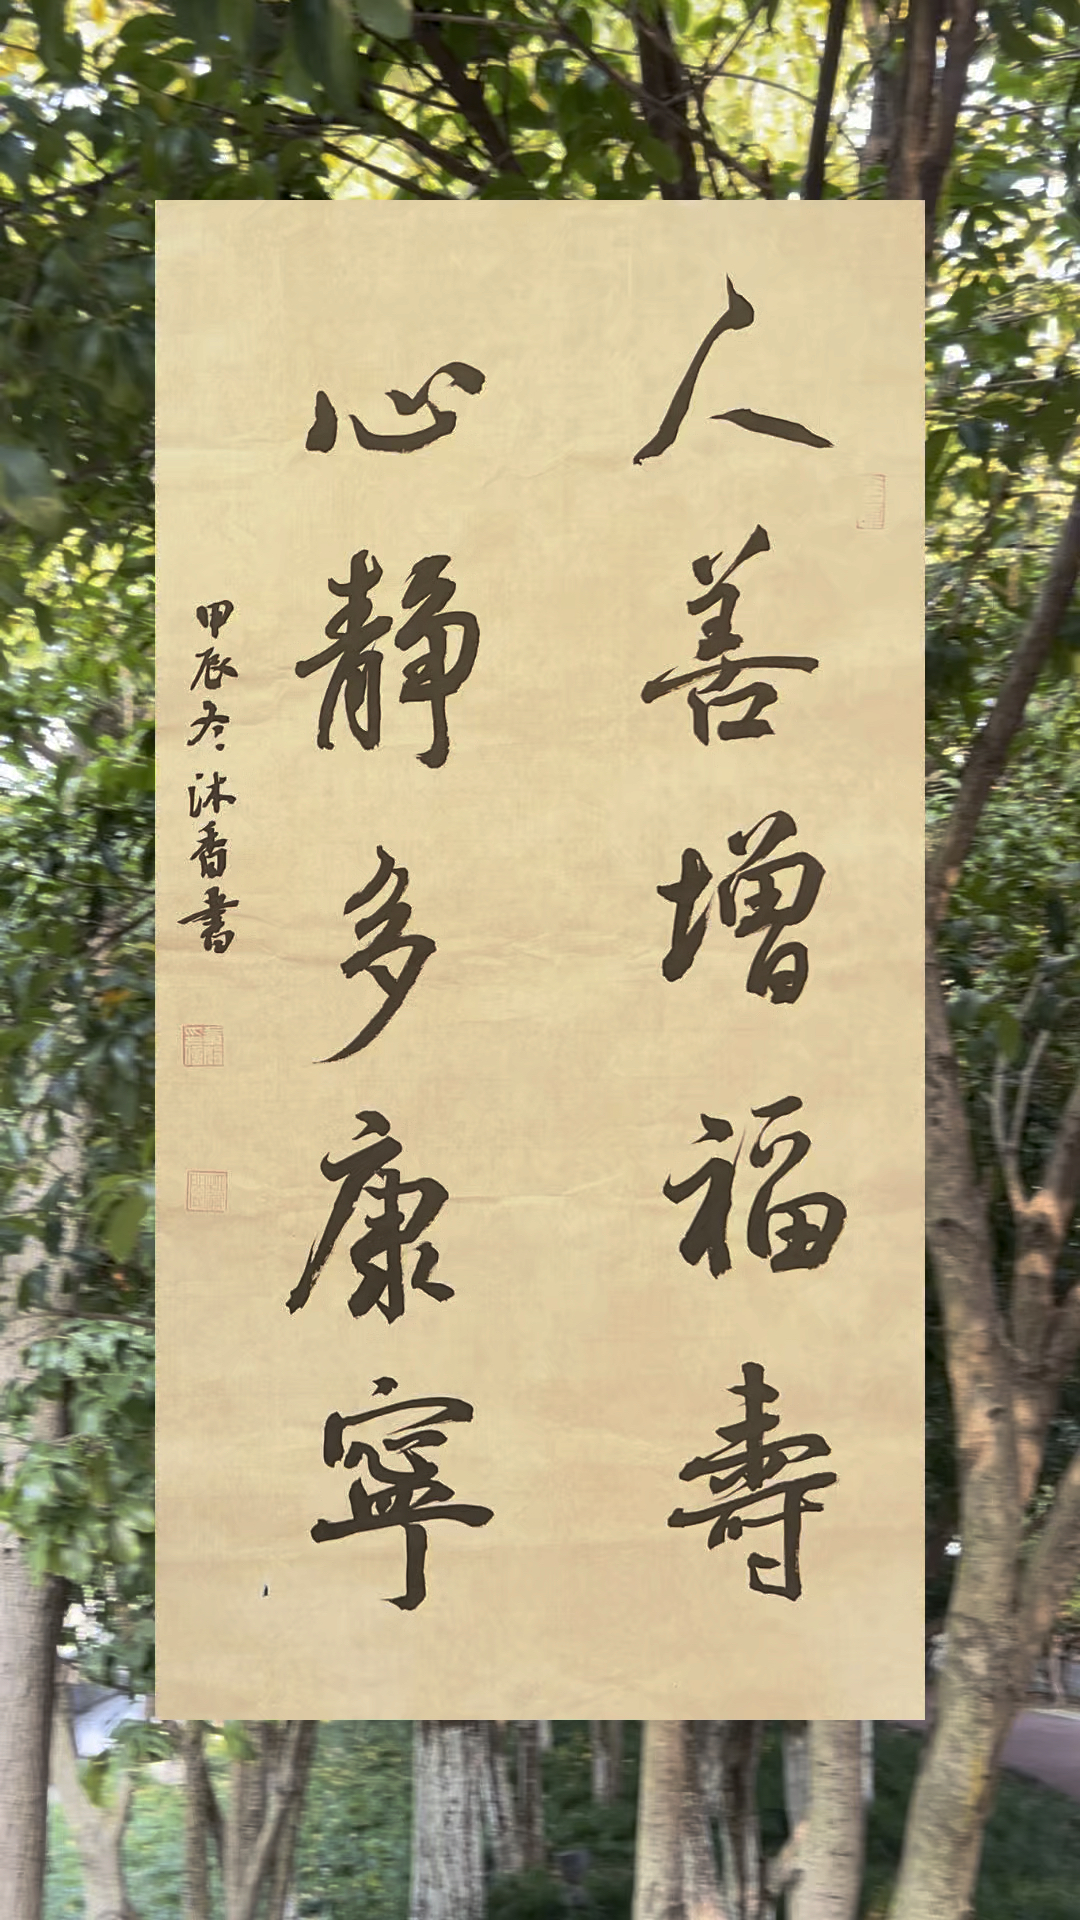 人善增福壽
心靜多康寧
甲辰冬沐香書